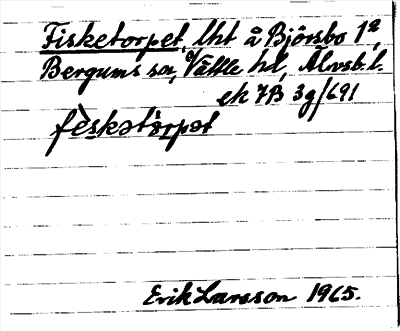 Fisketorpet, lht å Björsbo 1²,
Bergums sn, Vättle hd, Älvsb. l.
ek 7B 3g/691
fèskətòrpət
Erik Larsson 1965.